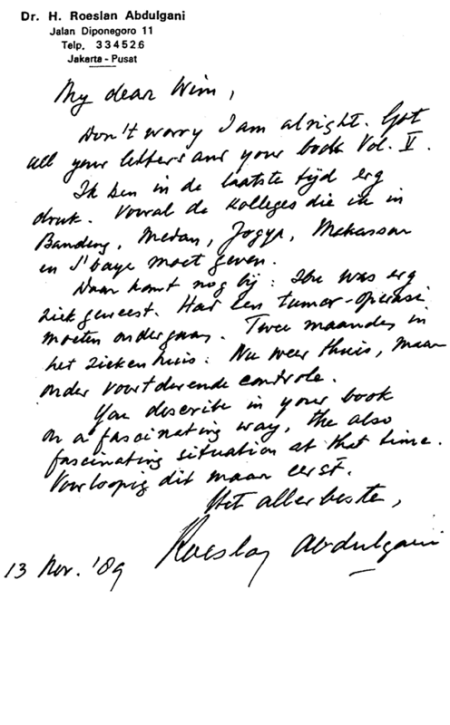 Dr. H. Roeslan Abdulgani
Jalan Diponegoro 11
Telp. 334526
Jakarta - Pusat
My dear Wim,
Don't worry I am alright. Got
all your letters and your book Vol. V.
Ik ben in de laatste tijd erg
druk. Vooral de kolleges die ik in
Bandung, Medan, Jogya, Makassar
en S'baya moet geven.
Daar komt nog bij: Ibu was erg
ziek geweest. Had een tumor-operasi
moeten ondergaan. Twee maanden in
het ziekenhuis. Nu weer thuis, maar
onder voortdurende controle.
You describe in your book
on a fascinating way, the also
fascinating situation at that time.
Voorlopig dit maar eerst.
Het allerbeste,
Roeslan Abdulgani
13 Nov. '89